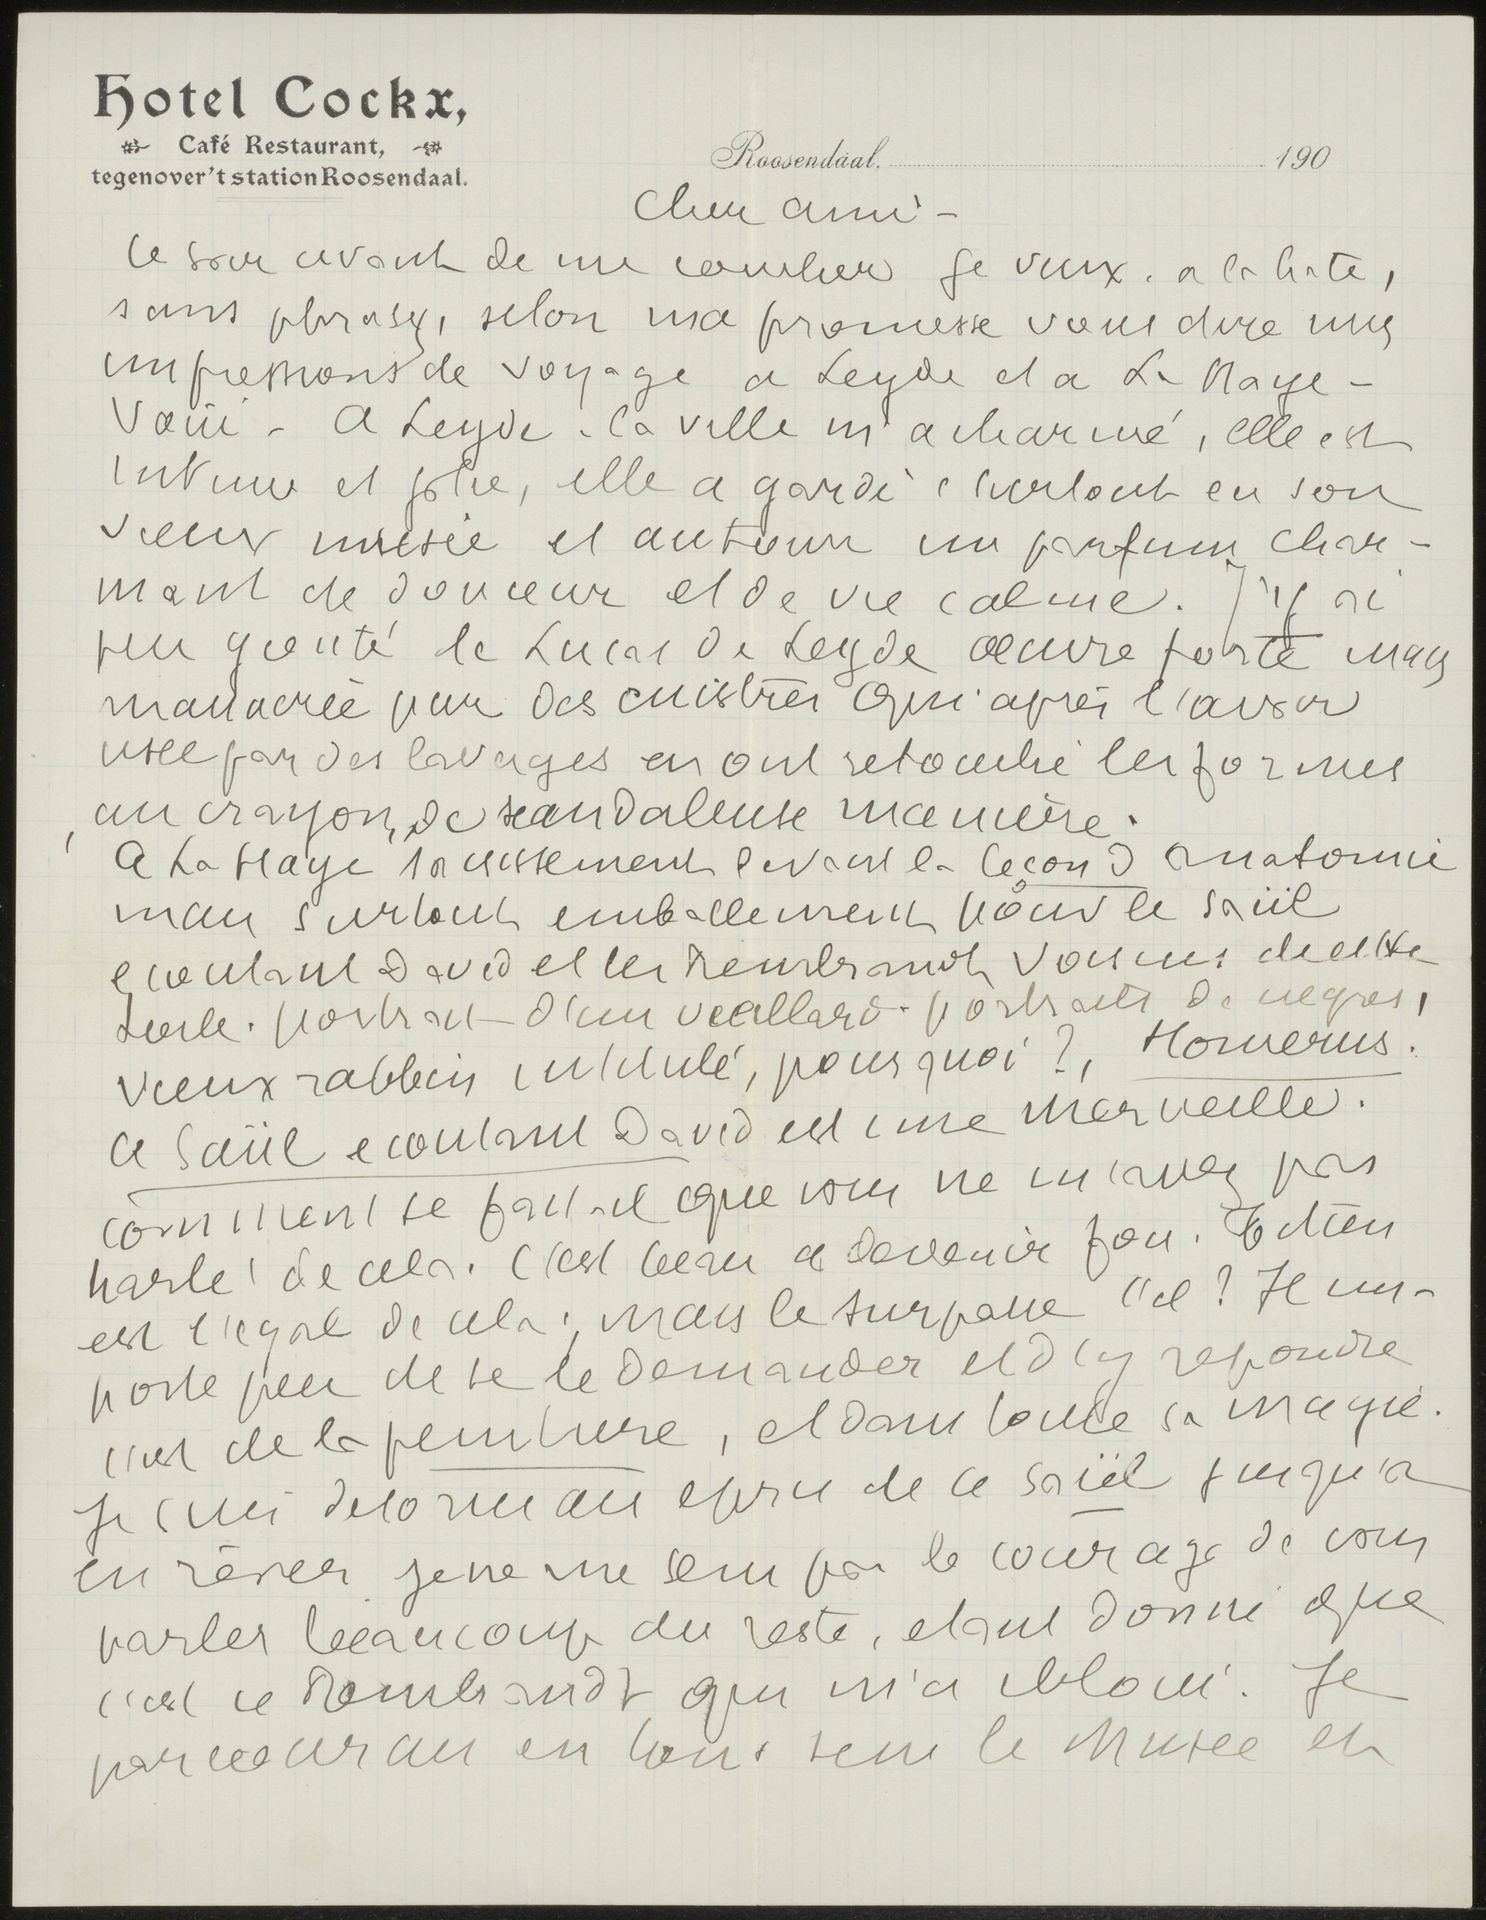 Hotel Cockx,
Café Restaurant,
tegenover't station Roosendaal.
Roosendaal, 190
Cher ami -
Ce soir avant de me coucher je veux. a la hate,
sans phrases, selon ma promesse vous dire mes
impressions de voyage a Leyde et a La Haye -
Voici - A Leyde. la ville m'a charmé, elle est
intime et jolie, elle a gardé surtout en son
vieux musée et autour un parfum char-
mant de douceur et de vie calme. J'y ai
peu gouté le Lucas de Leyde œuvre forte mais
massacrée par des cuistres qui après l'avoir
usée par des lavages en ont retouché les formes
au crayon, de scandaleuse manière.
A La Haye saisissement devant la leçon d'anatomie
mais surtout emballement pour le Saül
ecoutant David et les Rembrandt voisins de cette
toile. portrait d'un vieillard. portraits de negres,
vieux rabbin intitulé, pourquoi?, Homerus.
Ce Saül ecoutant David est une merveille.
comment se fait-il que vous ne m'avez pas
parlé de cela. C'est beau a devenir fou. Titien
est l'egal de cela, mais le surpasse t'il? Il im-
porte peu de se le demander et d'y repondre
c'est de la peinture, et dans toute sa magie.
Je suis desormais epris de ce Saül jusqu'a
en rêver je ne me sens pas le courage de vous
parler beaucoup du reste, etant donné que
c'est ce Rembrandt qui m'a ebloui. Je
parcourais en tous sens le Musée et